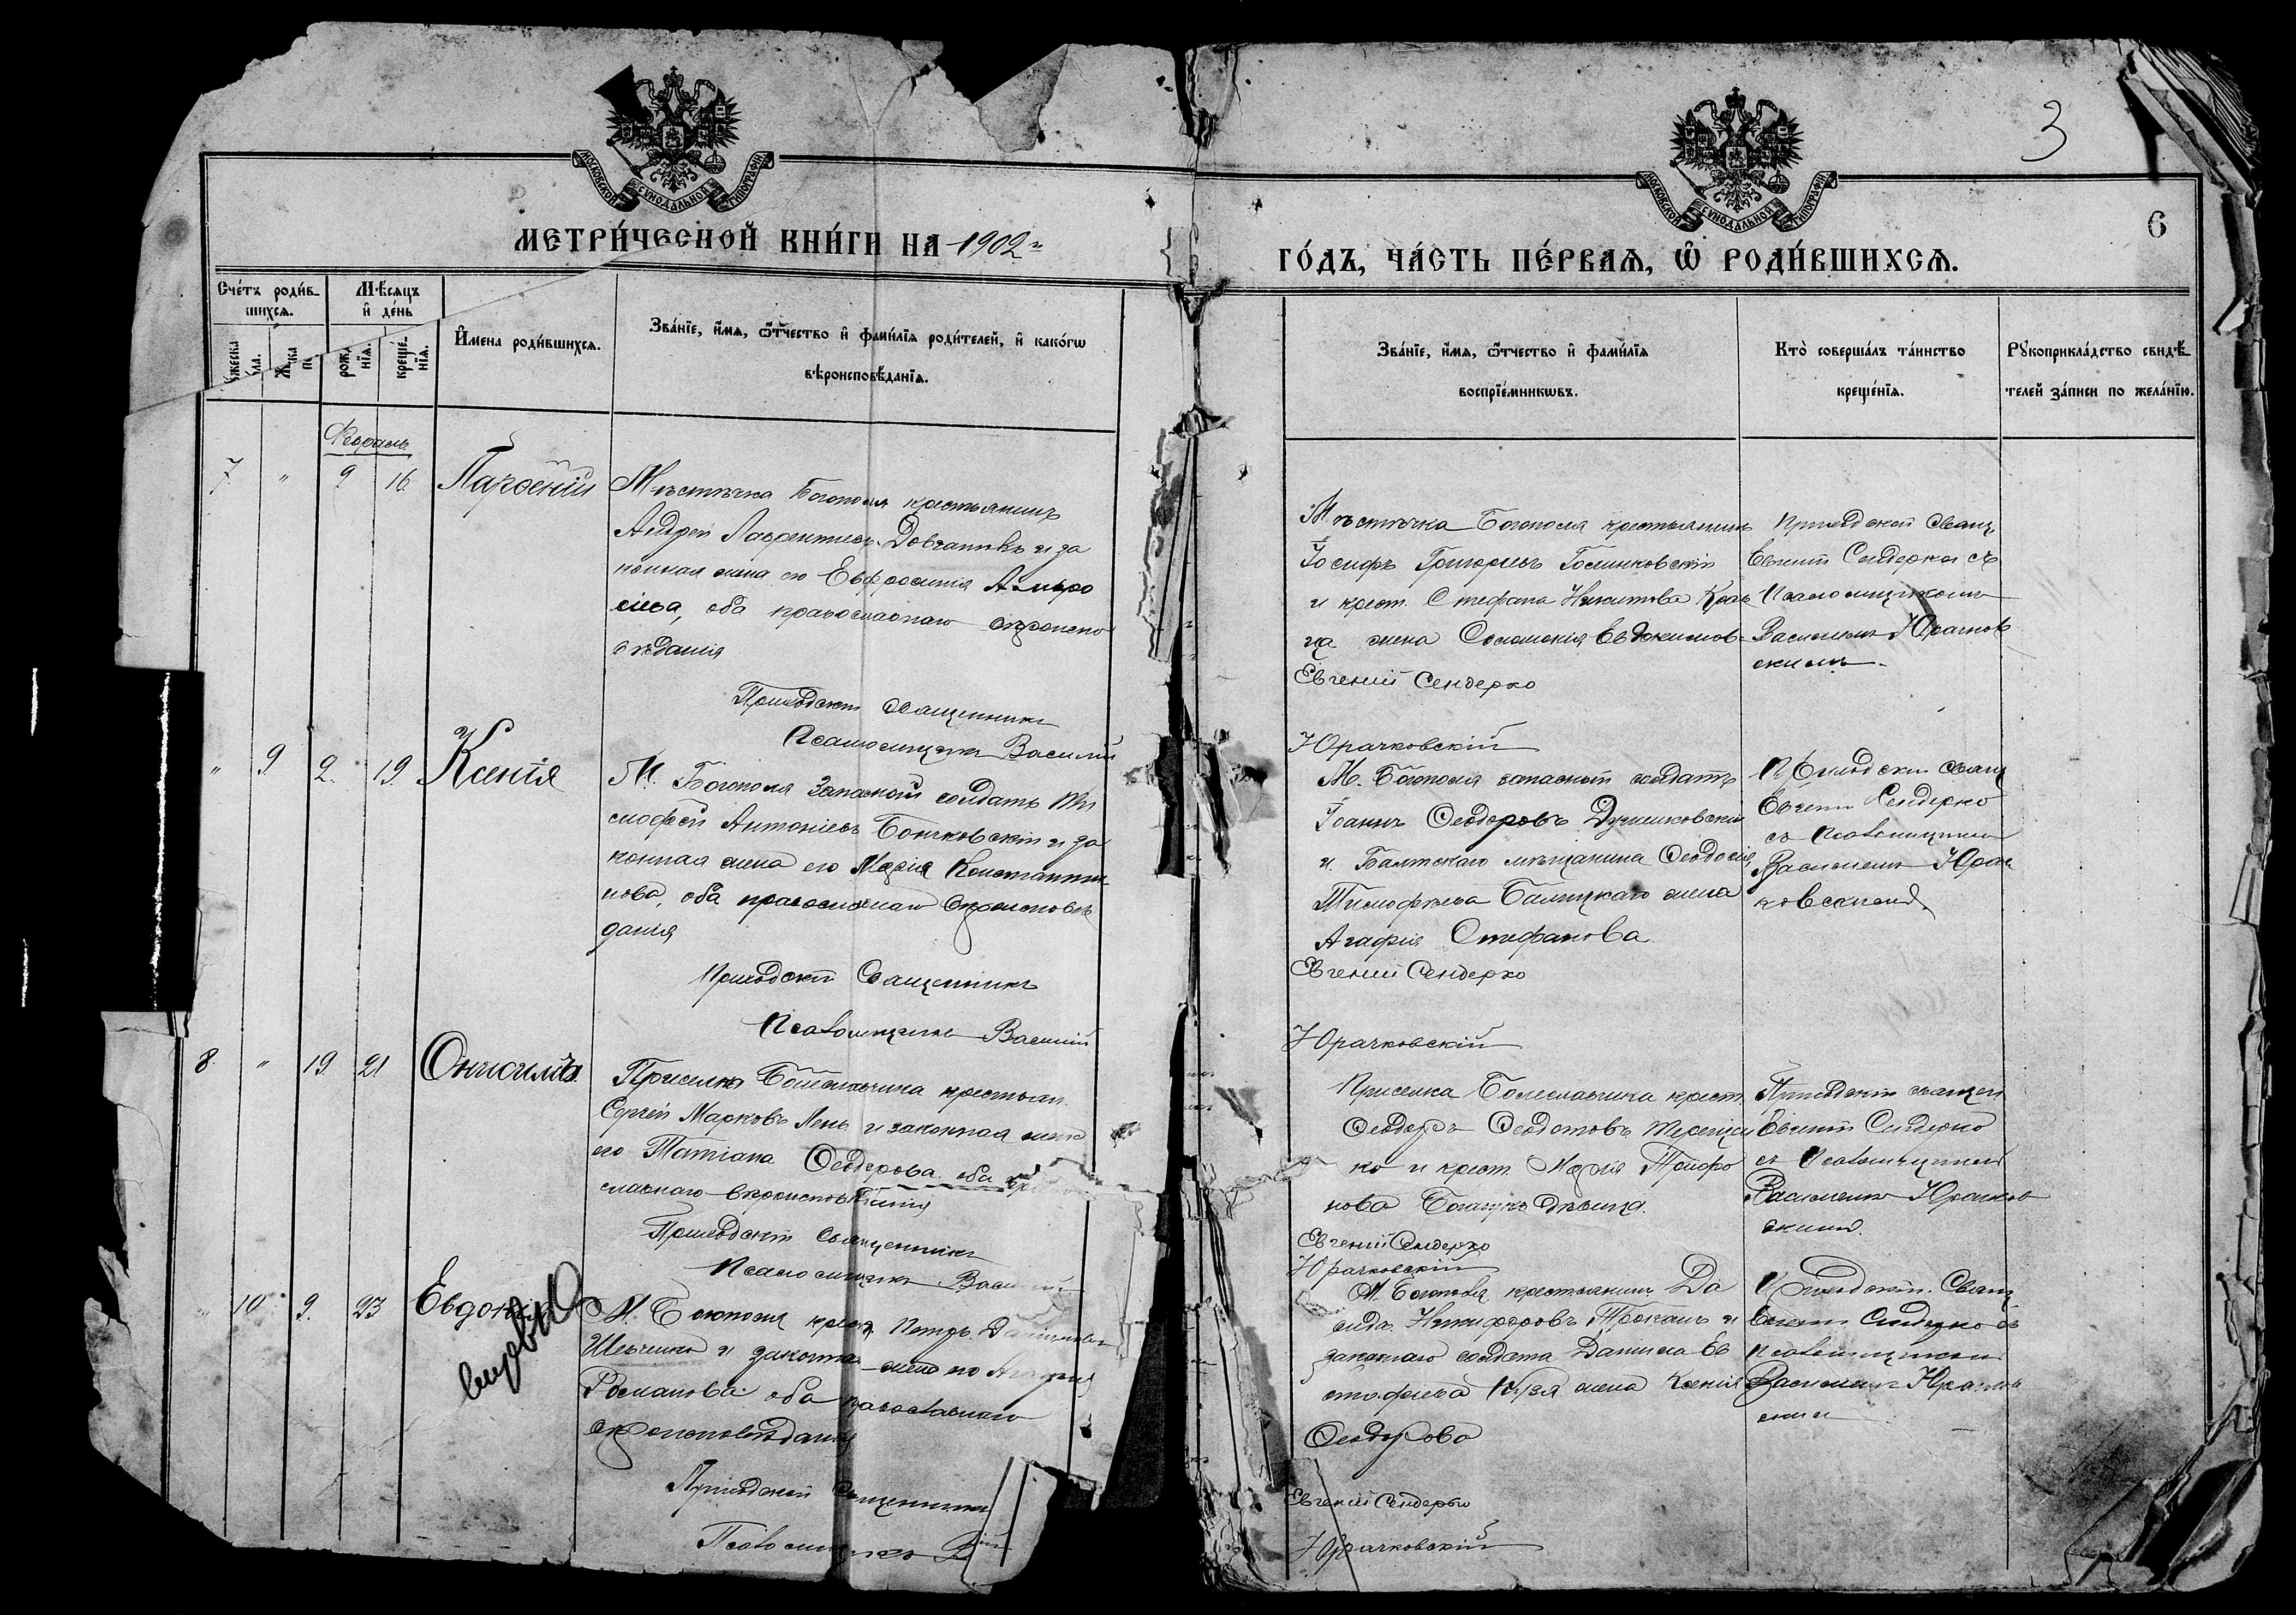 3
6
МОСКОВСКОЙ СУНОДАЛЬНОЙ ТИПОГРАФІИ
МОСКОВСКОЙ СУНОДАЛЬНОЙ ТИПОГРАФІИ
МЕТРИ́ЧЕСКОЙ КНИ́ГИ НА 1902
ГО́ДЪ, ЧА́СТЬ ПЕ́РВАѦ, Ѡ РОДИ́ВШИХСѦ.
Сче́тъ роди́в-
шихсѧ.
Мѣ́сѧцъ
и де́нь
рожд
нїѧ.
креще́-
нїѧ.
И́мена роди́вшихсѧ.
Зва́нїе, и́мѧ, ѻ҆́тчество и фами́лїѧ роди́телей, и како́гѡ
вѣроисповѣ́данїѧ.
Зва́нїе, и́мѧ, ѻ҆́тчество и фами́лїѧ
воспрїе́мникѡвъ.
Кто̀ соверша́лъ та́инство
креще́нїѧ.
Рꙋкоприкла́дство свидѣ́-
телей за́писи по жела́нїю.
Февраль
7 " 9 16 Парѳеній
Мѣстечка Богополя крестьянинъ
Андрей Лаврентьевъ Довганикъ и за
конная жена его Евфросинія Амвро
сіева, оба православнаго вѣроиспо
вѣданія
Приходскій Священникъ
Псаломщикъ Василій
Мѣстечка Богополя крестьянинъ
Іосифъ Григорьевъ Голинковскій
и крест. Стефана Никитова
жена Соломонія Евдокимов-
Евгеній Сендерко
Юрачковскій
Приходскій Свящ.
Евгеній Сендерко съ
Псаломщикомъ
Василіемъ Юрачков
скимъ.
" 9 2. 19. Ксенія
М. Богополя Запасной солдатъ Ти
моѳей Антоніевъ Бочковскій и за
конная жена его Марія Константи
нова, оба православнаго вѣроисповѣ
данія
Приходскій Священникъ
Псаломщикъ Василій
М. Богополя запасный солдатъ
Іоаннъ Ѳеодоровъ Душковскій
и Балтскаго мѣщанина Ѳеодосія
Тимоѳеева Балицкаго жена
Агафія Стефанова
Евгеній Сендерко
Юрачковскій
Приходскій Свящ
Евгеній Сендерко
съ Псаломщикомъ
Василіемъ Юрач
ковскимъ.
8. " 19. 21 Онисимъ.
Приселка Болеславчика крестьян.
Сергей Марковъ Лень и законная жена
его Татіана Ѳеодорова оба право
славнаго вѣроисповѣданія
Приходскій Священникъ
Псаломщикъ Василій
Приселка Болеславчика крест.
Ѳеодоръ Ѳеодотовъ Терещен
ко и крест. Марія Трифо
нова дѣвица.
Евгеній Сендерко
Юрачковскій
Приходскій священ
Евгеній Сендерко
съ Псаломщикомъ
Василіемъ Юрачков
скимъ.
" 10 9. 23 Евдокія
М. Богополя крест. Петръ Даниловъ
Шевченко и законная жена его Агафія
Романова оба православнаго
вѣроисповѣданія
Приходскій Священникъ
Псаломщикъ
М. Богополя крестьянинъ Да
видъ Никифоровъ и
запаснаго солдата Даниила Ев
стафіева жена Ксенія
Ѳеодорова
Евгеній Сендерко
Юрачковскій
Приходскій Свящ
Евгеній Сендерко съ
Псаломщикомъ
Василіемъ Юрачков
скимъ